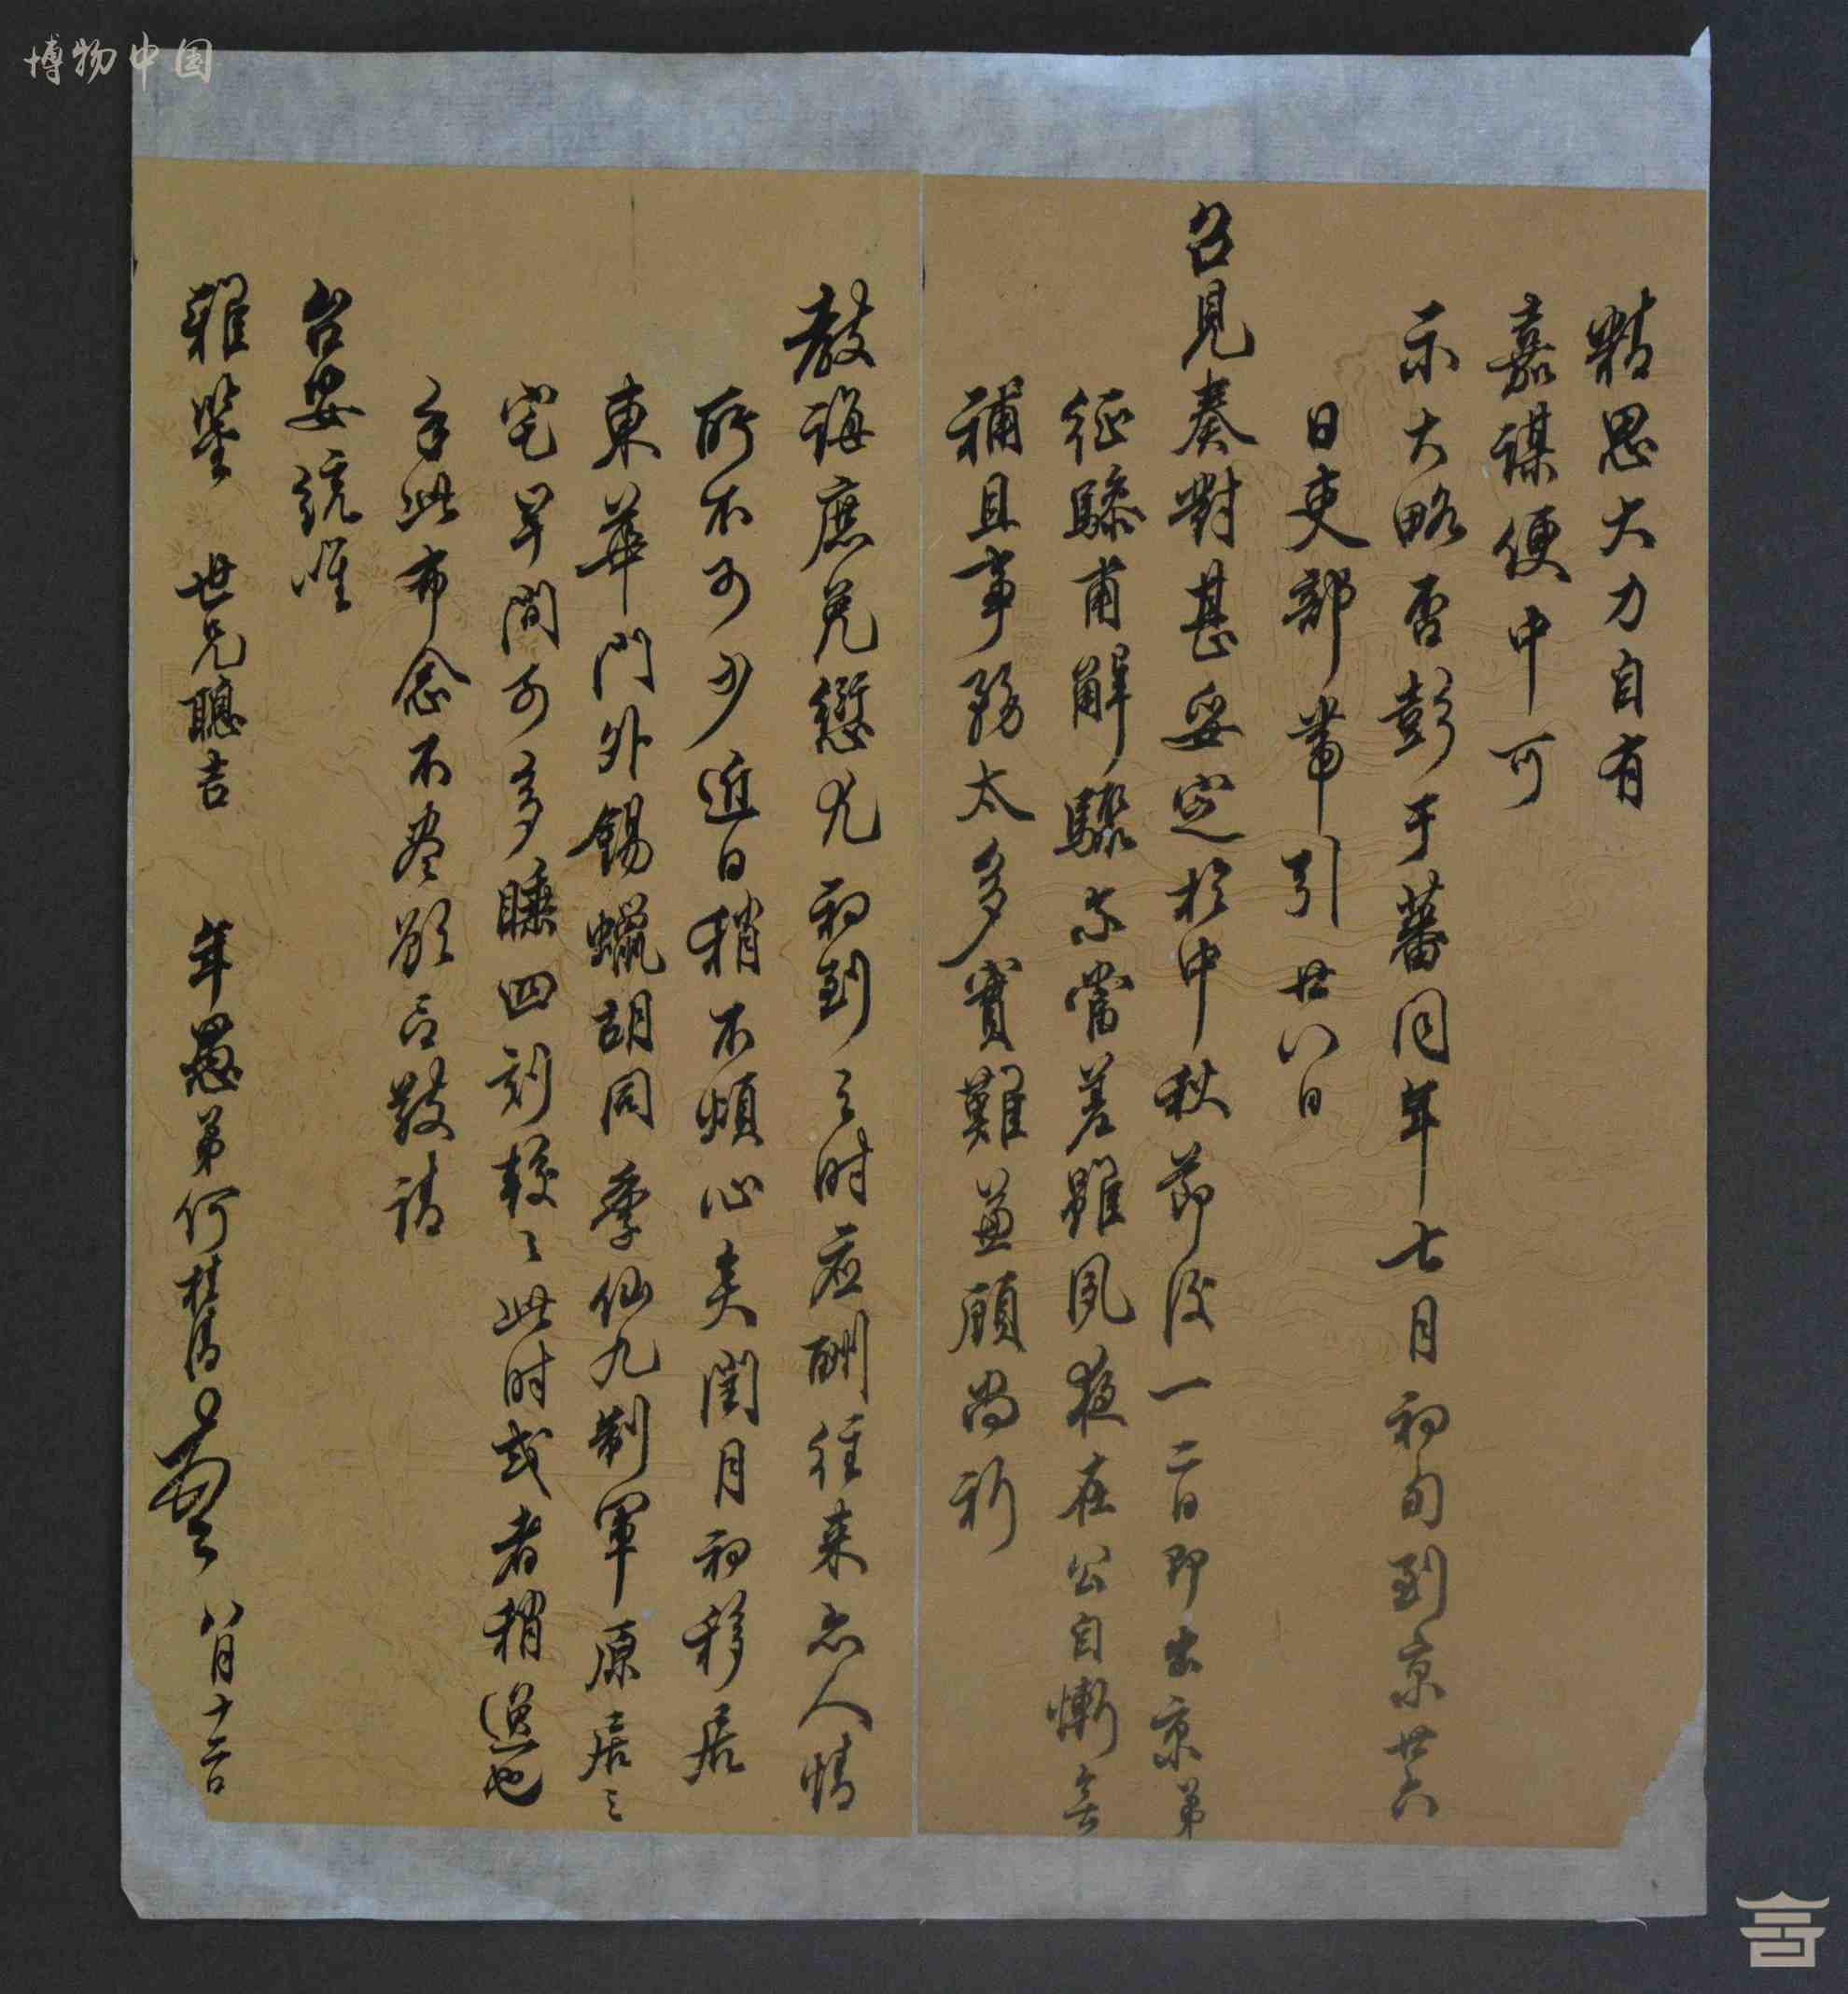 博物中国
精思大力自有
嘉謀便中可
示大略否彭于蕃同年七月初旬到京廿六
日吏部帶引廿八日
召見奏對甚妥定於中秋節後一二日即出京弟
征驂甫解驟亦當差雖夙夜在公自慚無
補且事務太多實難兼顧尚祈
教誨庶免愆尤初到之时应酬往来亦人情
所不可少近日稍不煩心矣閏月初移居
東華門外錫蠟胡同季仙九制軍原居之
宅早間可多睡四刻較之此时或者稍逸也
手此布念不尽欲言敬請
台安統唯
雅鑒 世兄聰吉 年愚弟何桂清 八月十二日